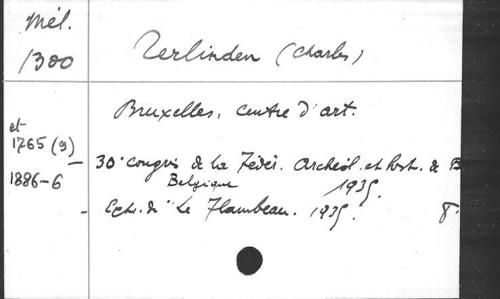 Mél.
1300
Terlinden (Charles)
Bruxelles, centre d'art.
et
1765 (9)
1886-6
- 30e congrès de la Fédér. Archéol. et hist. de B
Belgique 1935.
- Extr. de "Le Flambeau. 1935. 8°